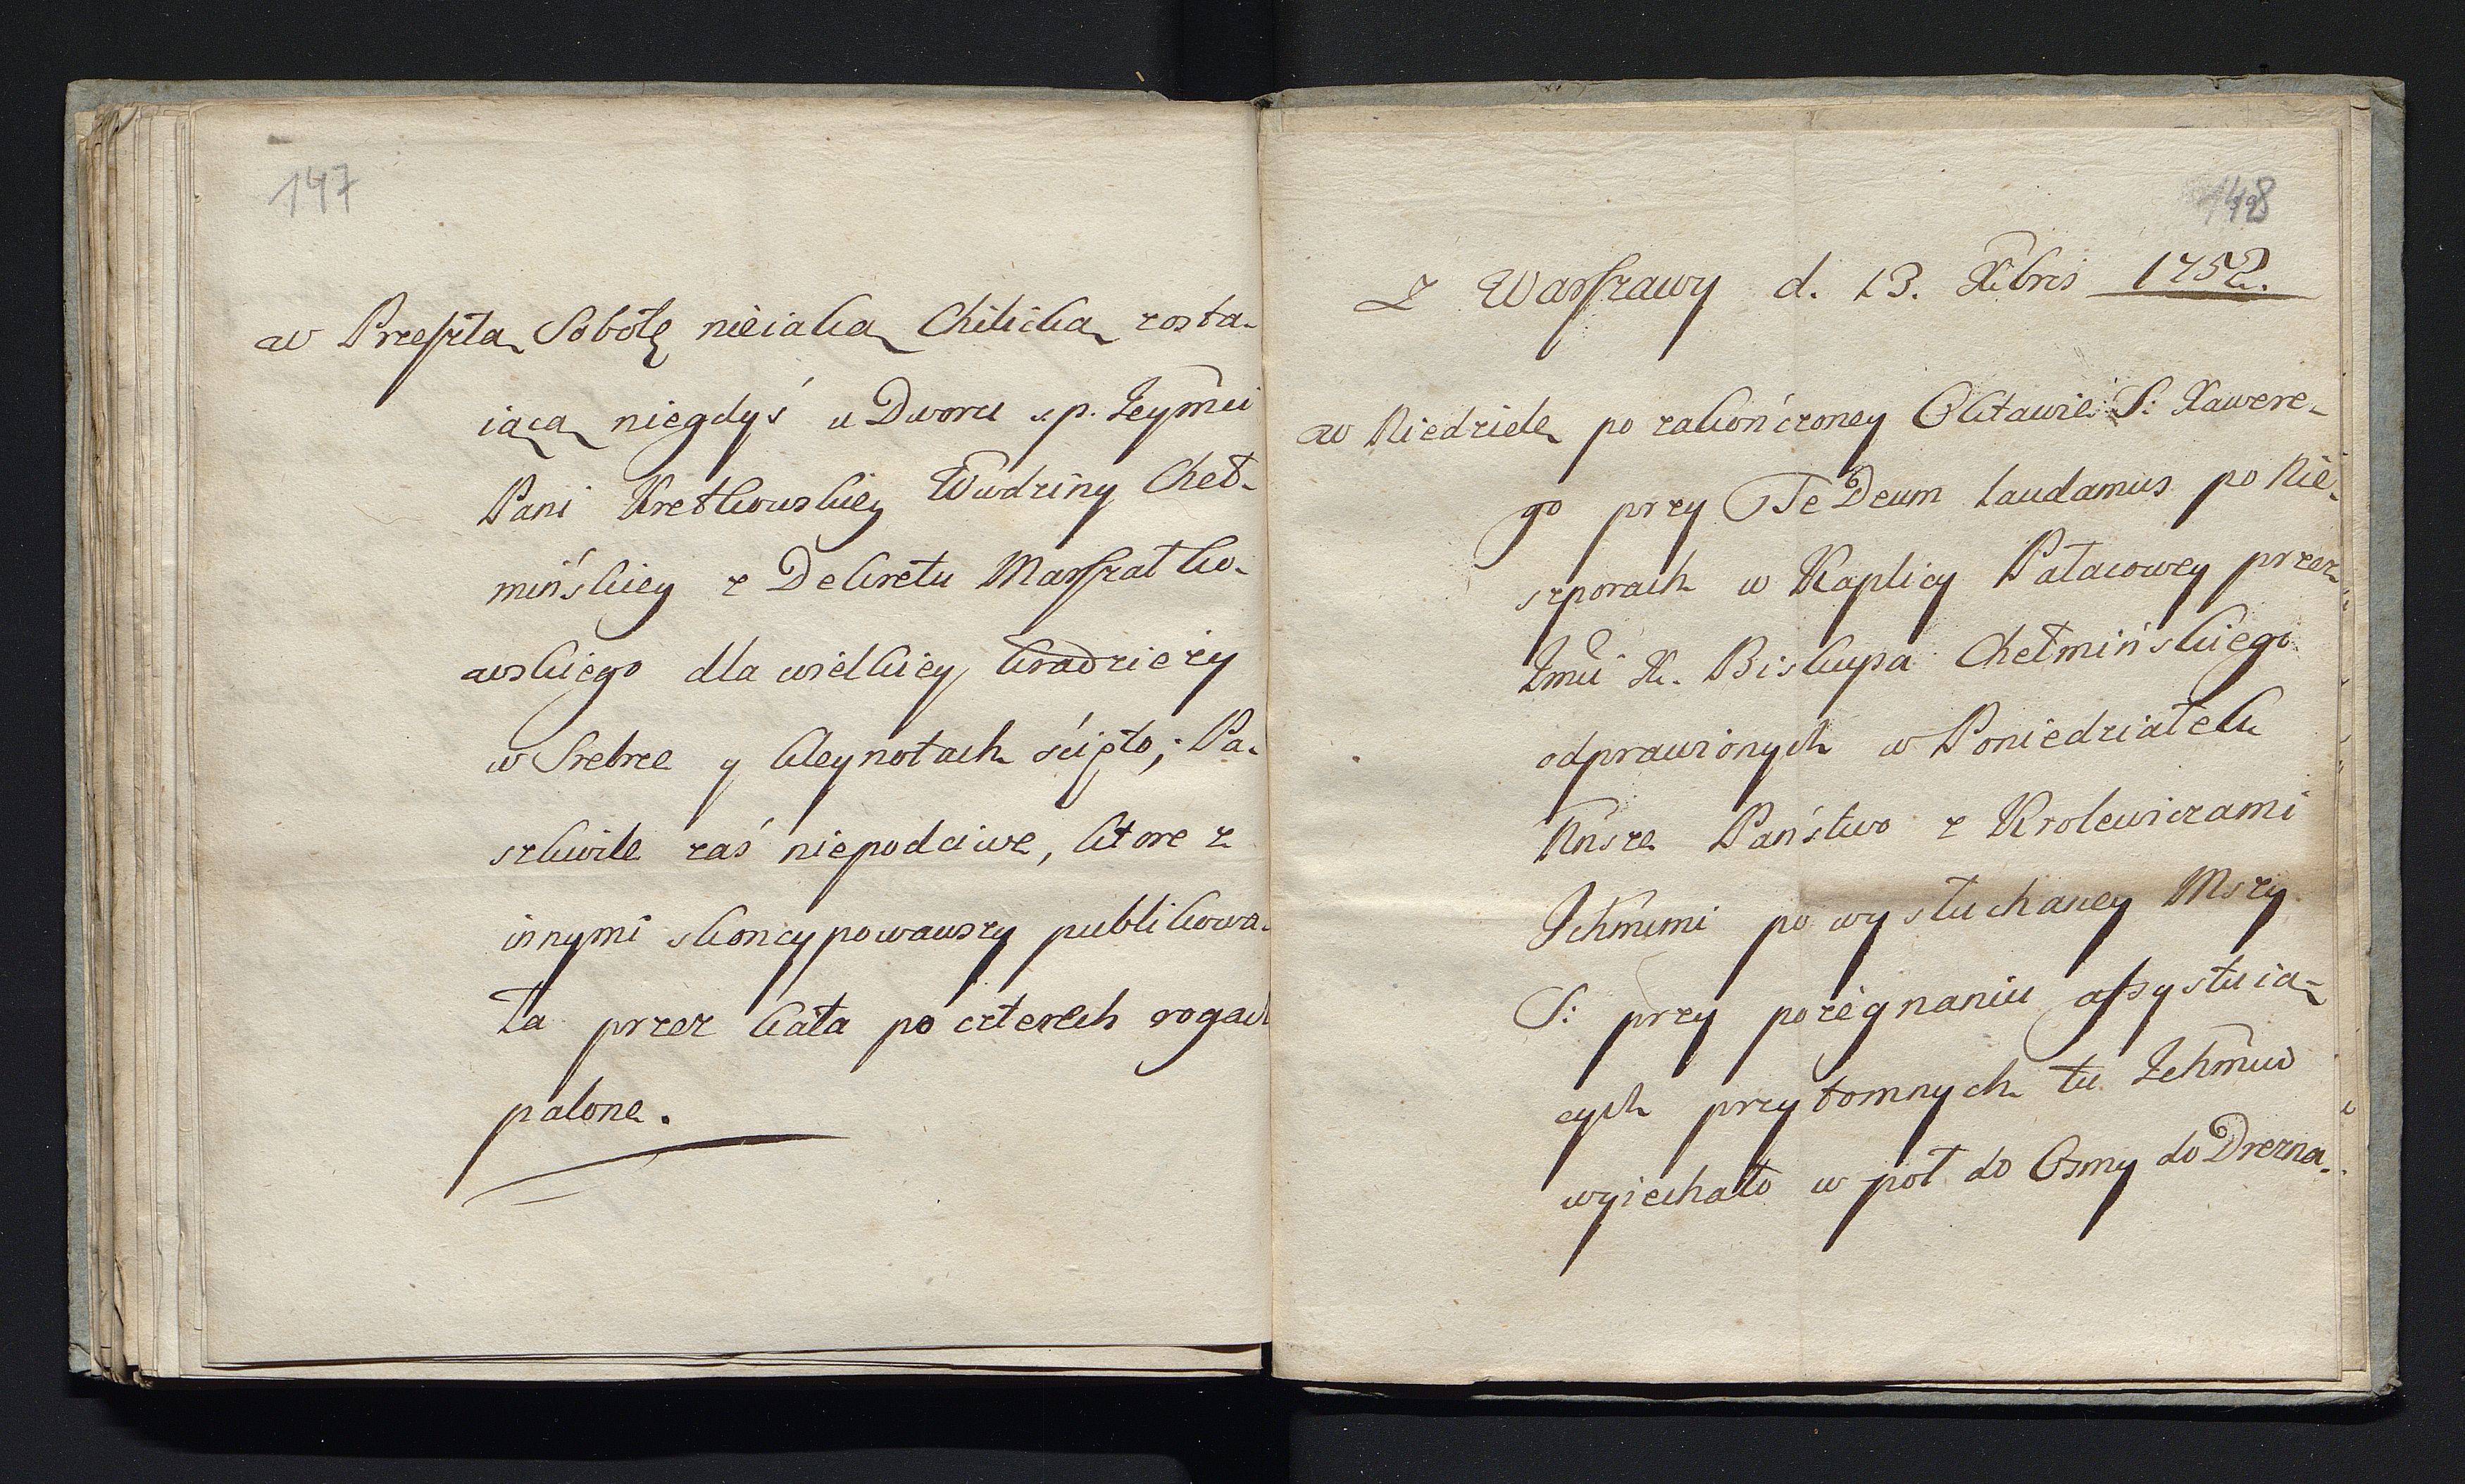 147
w Przeszłą Sobotę nieiaką Chilicką zosta-
iącą niegdyś u Dworu s.p. Jeymći
Pani Kretkowskiey Wwdziny Cheł-
mińskiey z Dekretu Marszałko-
wskiego dla wielkiey kradzieży
w Srebrze y kleynotach ścięto; Pa-
szkwile zaś niepodciwe, ktore z
innymi skoncypowawszy publikowa-
ła przez kata po czterech rogach
palone.
148
Z Warszawy d. 13. Xbris 1752.
w Niedzielę po zakończoney Oktawie S: Xawere-
go przy Te Deum laudamus po Nie-
szporach w Kaplicy Pałacowey przez
Jmći X. Biskupa Chełmińskiego
odprawionych w Poniedziałek
Knsze Państwo z Krolewiczami
Ichmcmi po wysłuchaney Mszy
S: przy pożegnaniu assystuią-
cych przytomnych tu Ichmćiow
wyiechało w puł do Osmy do Drezna.